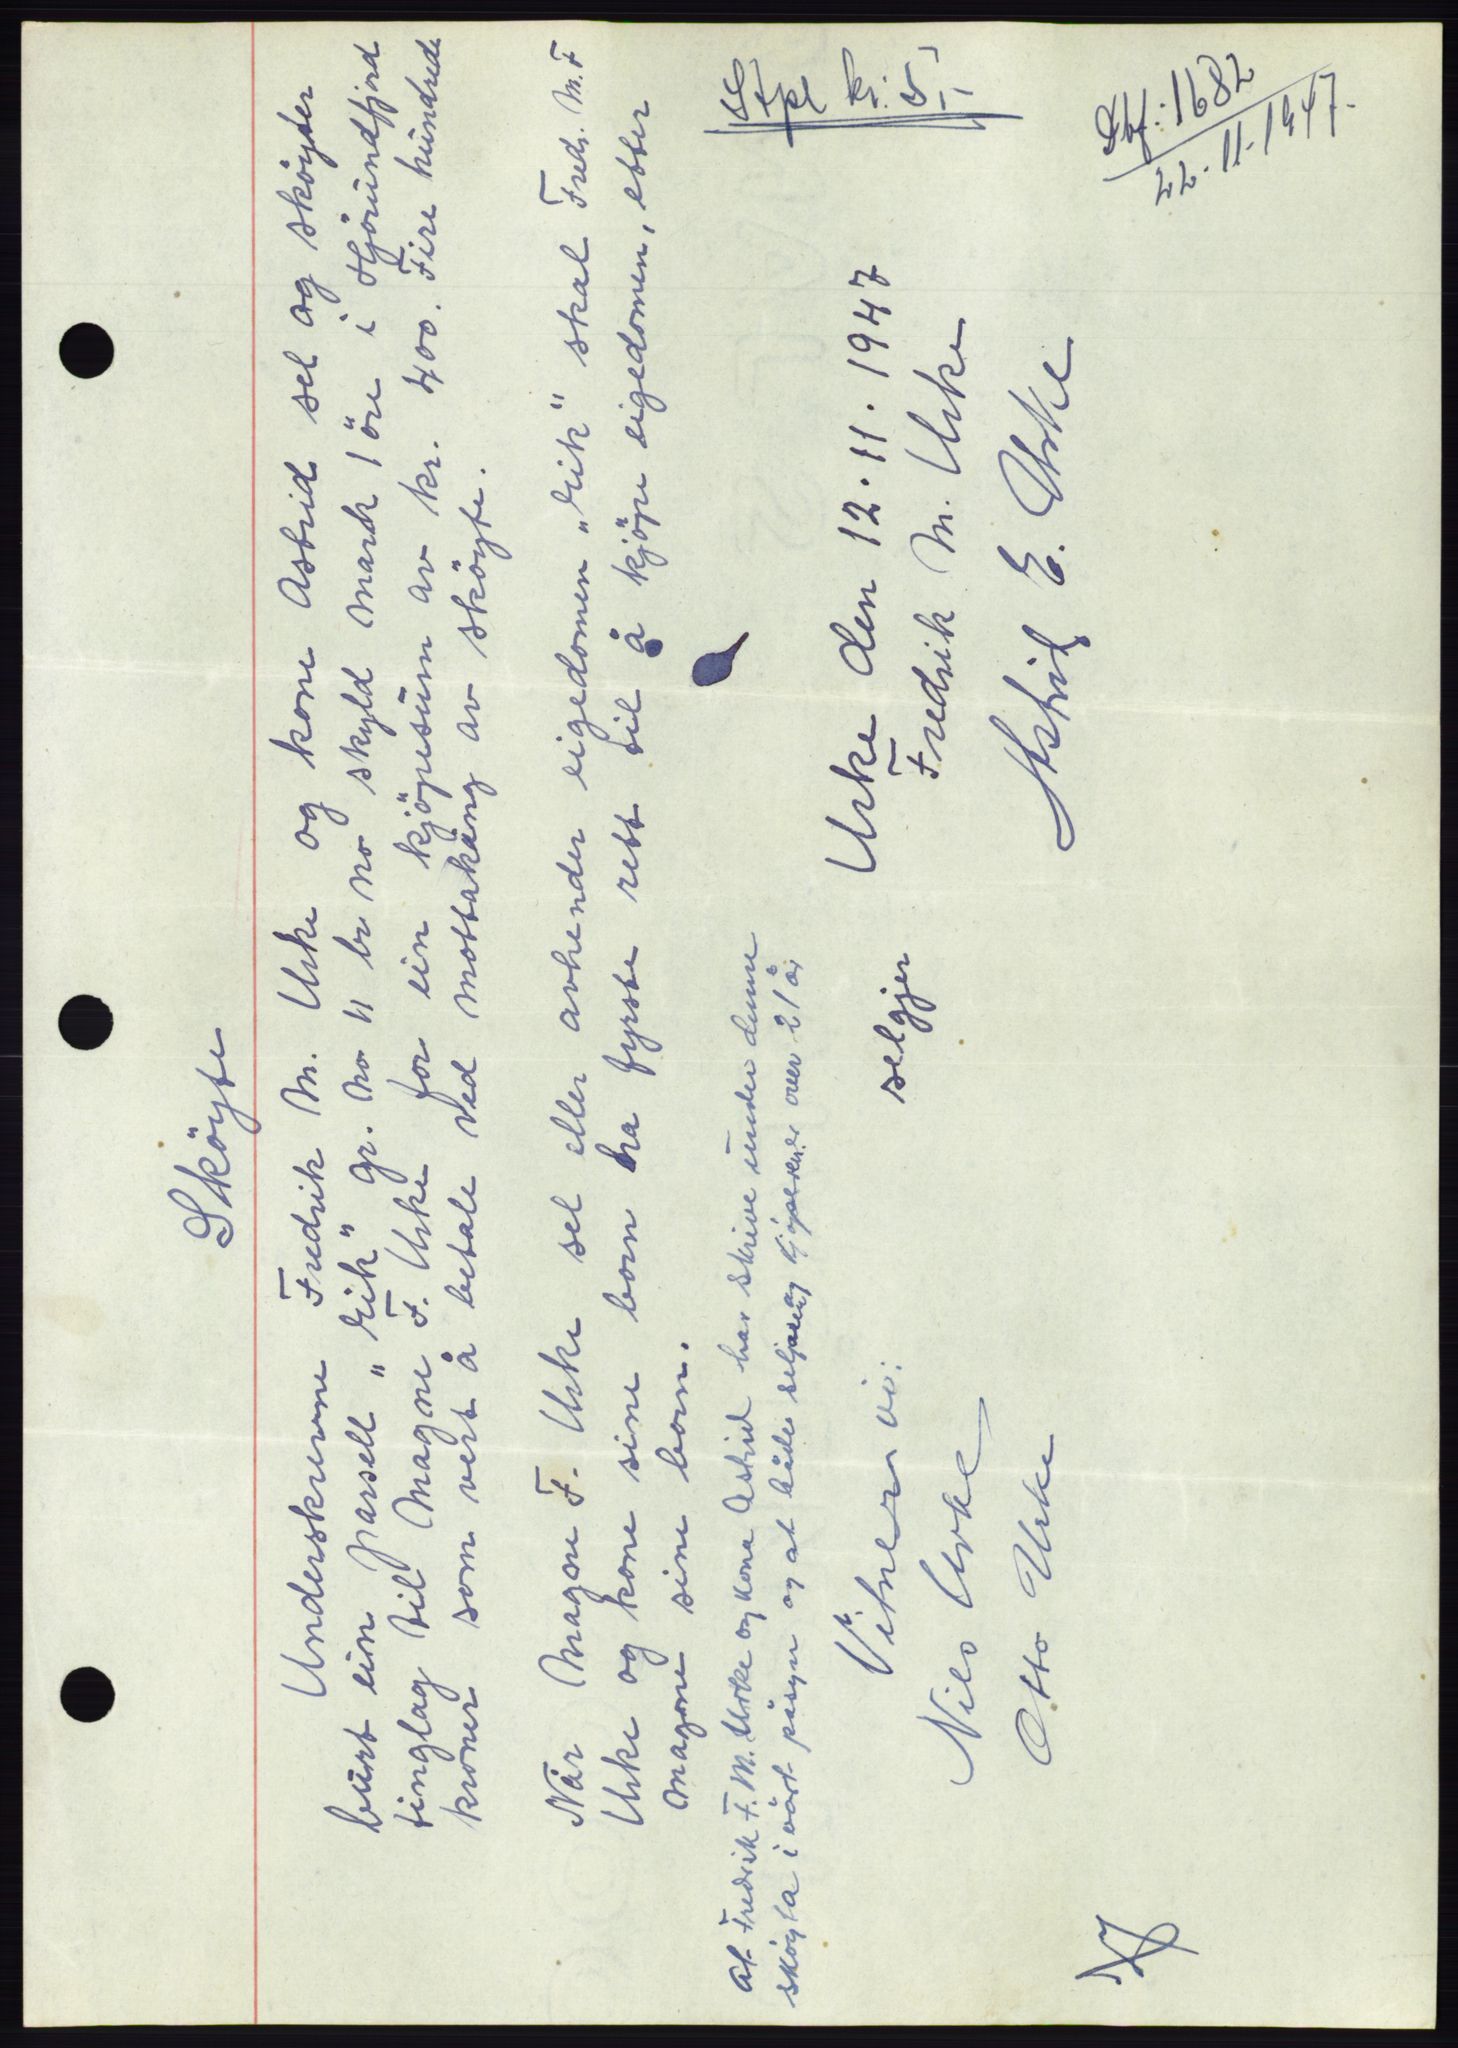 Sköyte
Underskrivne Fredrik M. Urke og kone Astrid sel og sköyder
burt ein parsell "Eik" gr. no 11 br no skyld mark 1 öre i Hjörundfjord
tinglag til Magne F. Urke for ein kjöpesum av kr. 400. Fire hundrede
kroner som vert å betale ved mottakung av sköyte.
Når Magne F. Urke sel eller avhender eigedomen "Eik" skal Fredr. M. F
Urke og kone sine born ha fyrste rett til å kjöpe eigedomen, etter
Magne sine born.
Stpl kr. 5
At Fredrik F. M. Urke og kona Astrid har skrive under denne
sköyta i vårt påsyn og at både seljaren og kjöperen er over 21 år
Vitner vi:
Nils Urke
Otto Urke
selgjer
Urke den 12.11.1947
Fredrik M. Urke
Astrid E. Urke
Dbf: 1682
22.11.1947.